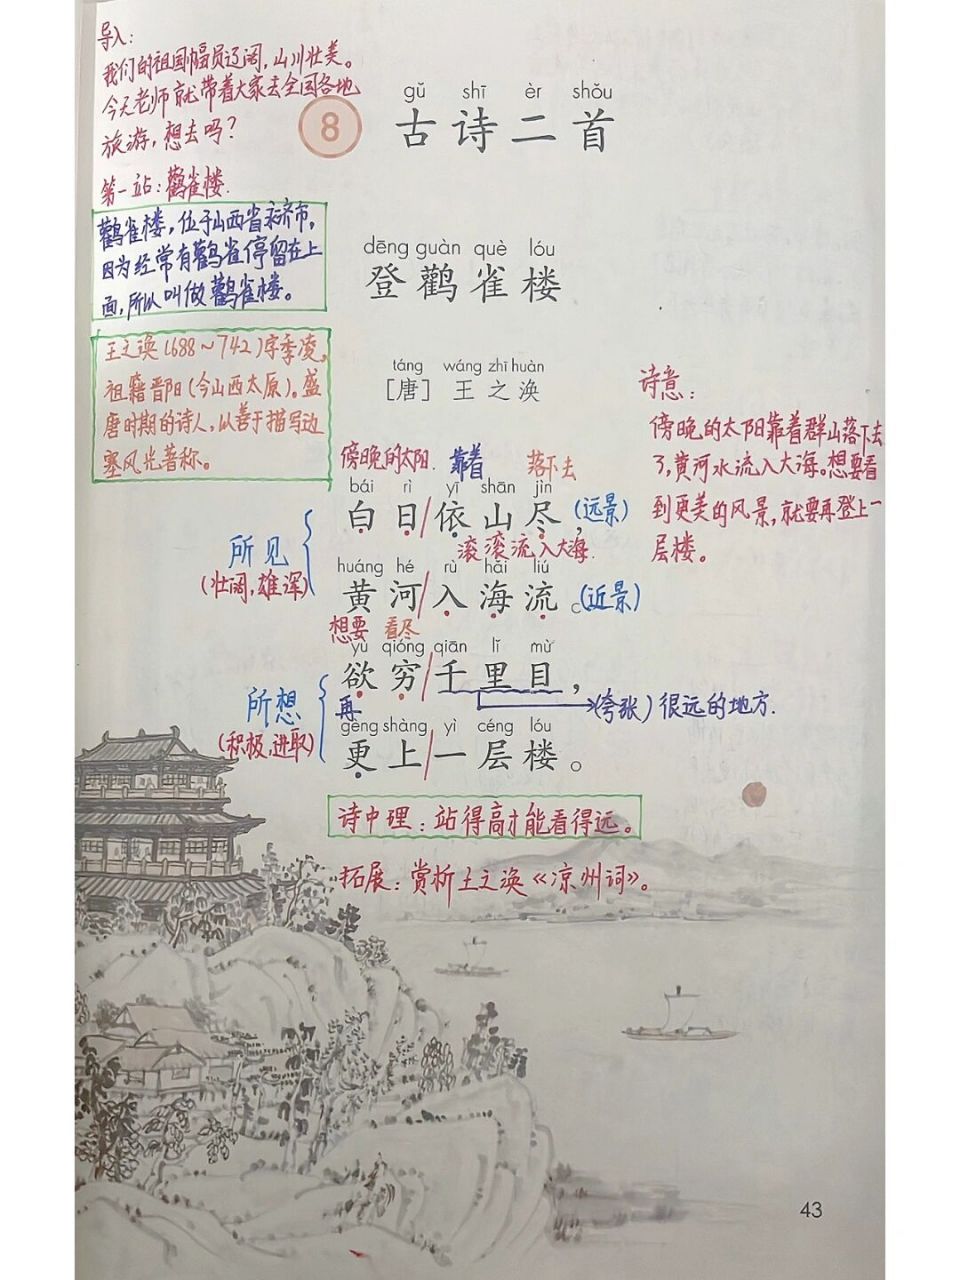 导入：
我们的祖国幅员辽阔，山川壮美。
今天老师就带着大家去全国各地
旅游，想去吗？
8
gǔ shī èr shǒu
古诗二首
第一站：鹳雀楼.
鹳雀楼，位于山西省永济市，
因为经常有鹳雀停留在上
面，所以叫做鹳雀楼。
dēng guàn què lóu
登鹳雀楼
王之涣（688～742）字季凌，
祖籍晋阳（今山西太原）。盛
唐时期的诗人，以善于描写边
塞风光著称。
táng wáng zhī huàn
［唐］王之涣
诗意：
傍晚的太阳靠着群山落下去
了，黄河水流入大海。想要看
到更美的风景，就要再登上一
层楼。
傍晚的太阳. 靠着 落下去
bái rì yī shān jìn
白日/依山尽，（远景）
所见
（壮阔，雄浑）
滚滚流入大海.
huáng hé rù hǎi liú
黄河/入海流。（近景）
想要 看尽
yù qióng qiān lǐ mù
欲穷/千里目，
（夸张）很远的地方.
所想
（积极，进取）
再
gèng shàng yì céng lóu
更上/一层楼。
诗中理：站得高才能看得远。
拓展：赏析王之涣《凉州词》。
43